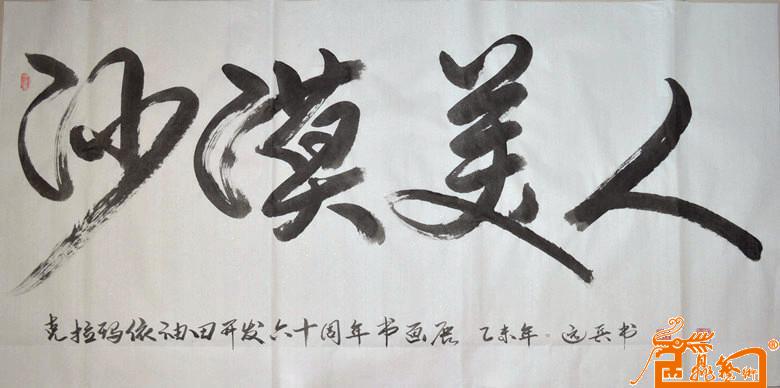 沙漠美人
克拉玛依油田开发六十周年书画展 乙未年 远兵书